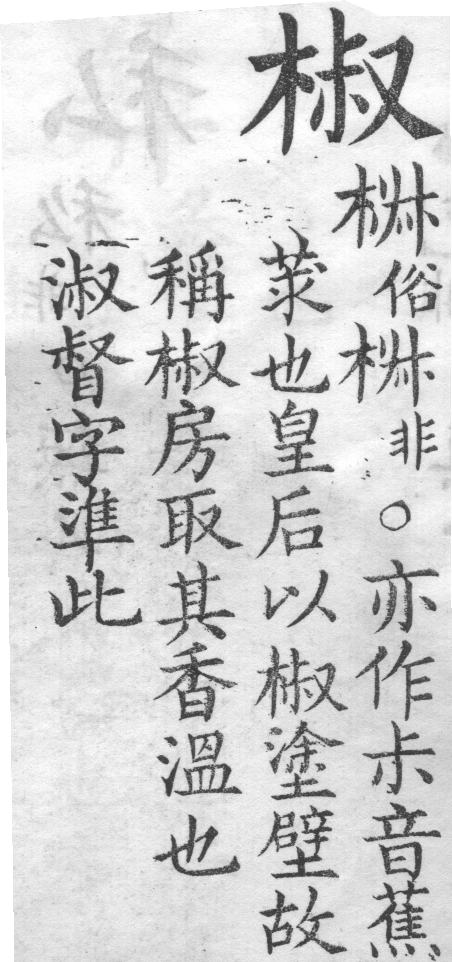 椒
俗非○亦作尗音蕉
莍也皇后以椒塗壁故
稱椒房取其香溫也
淑督字準此